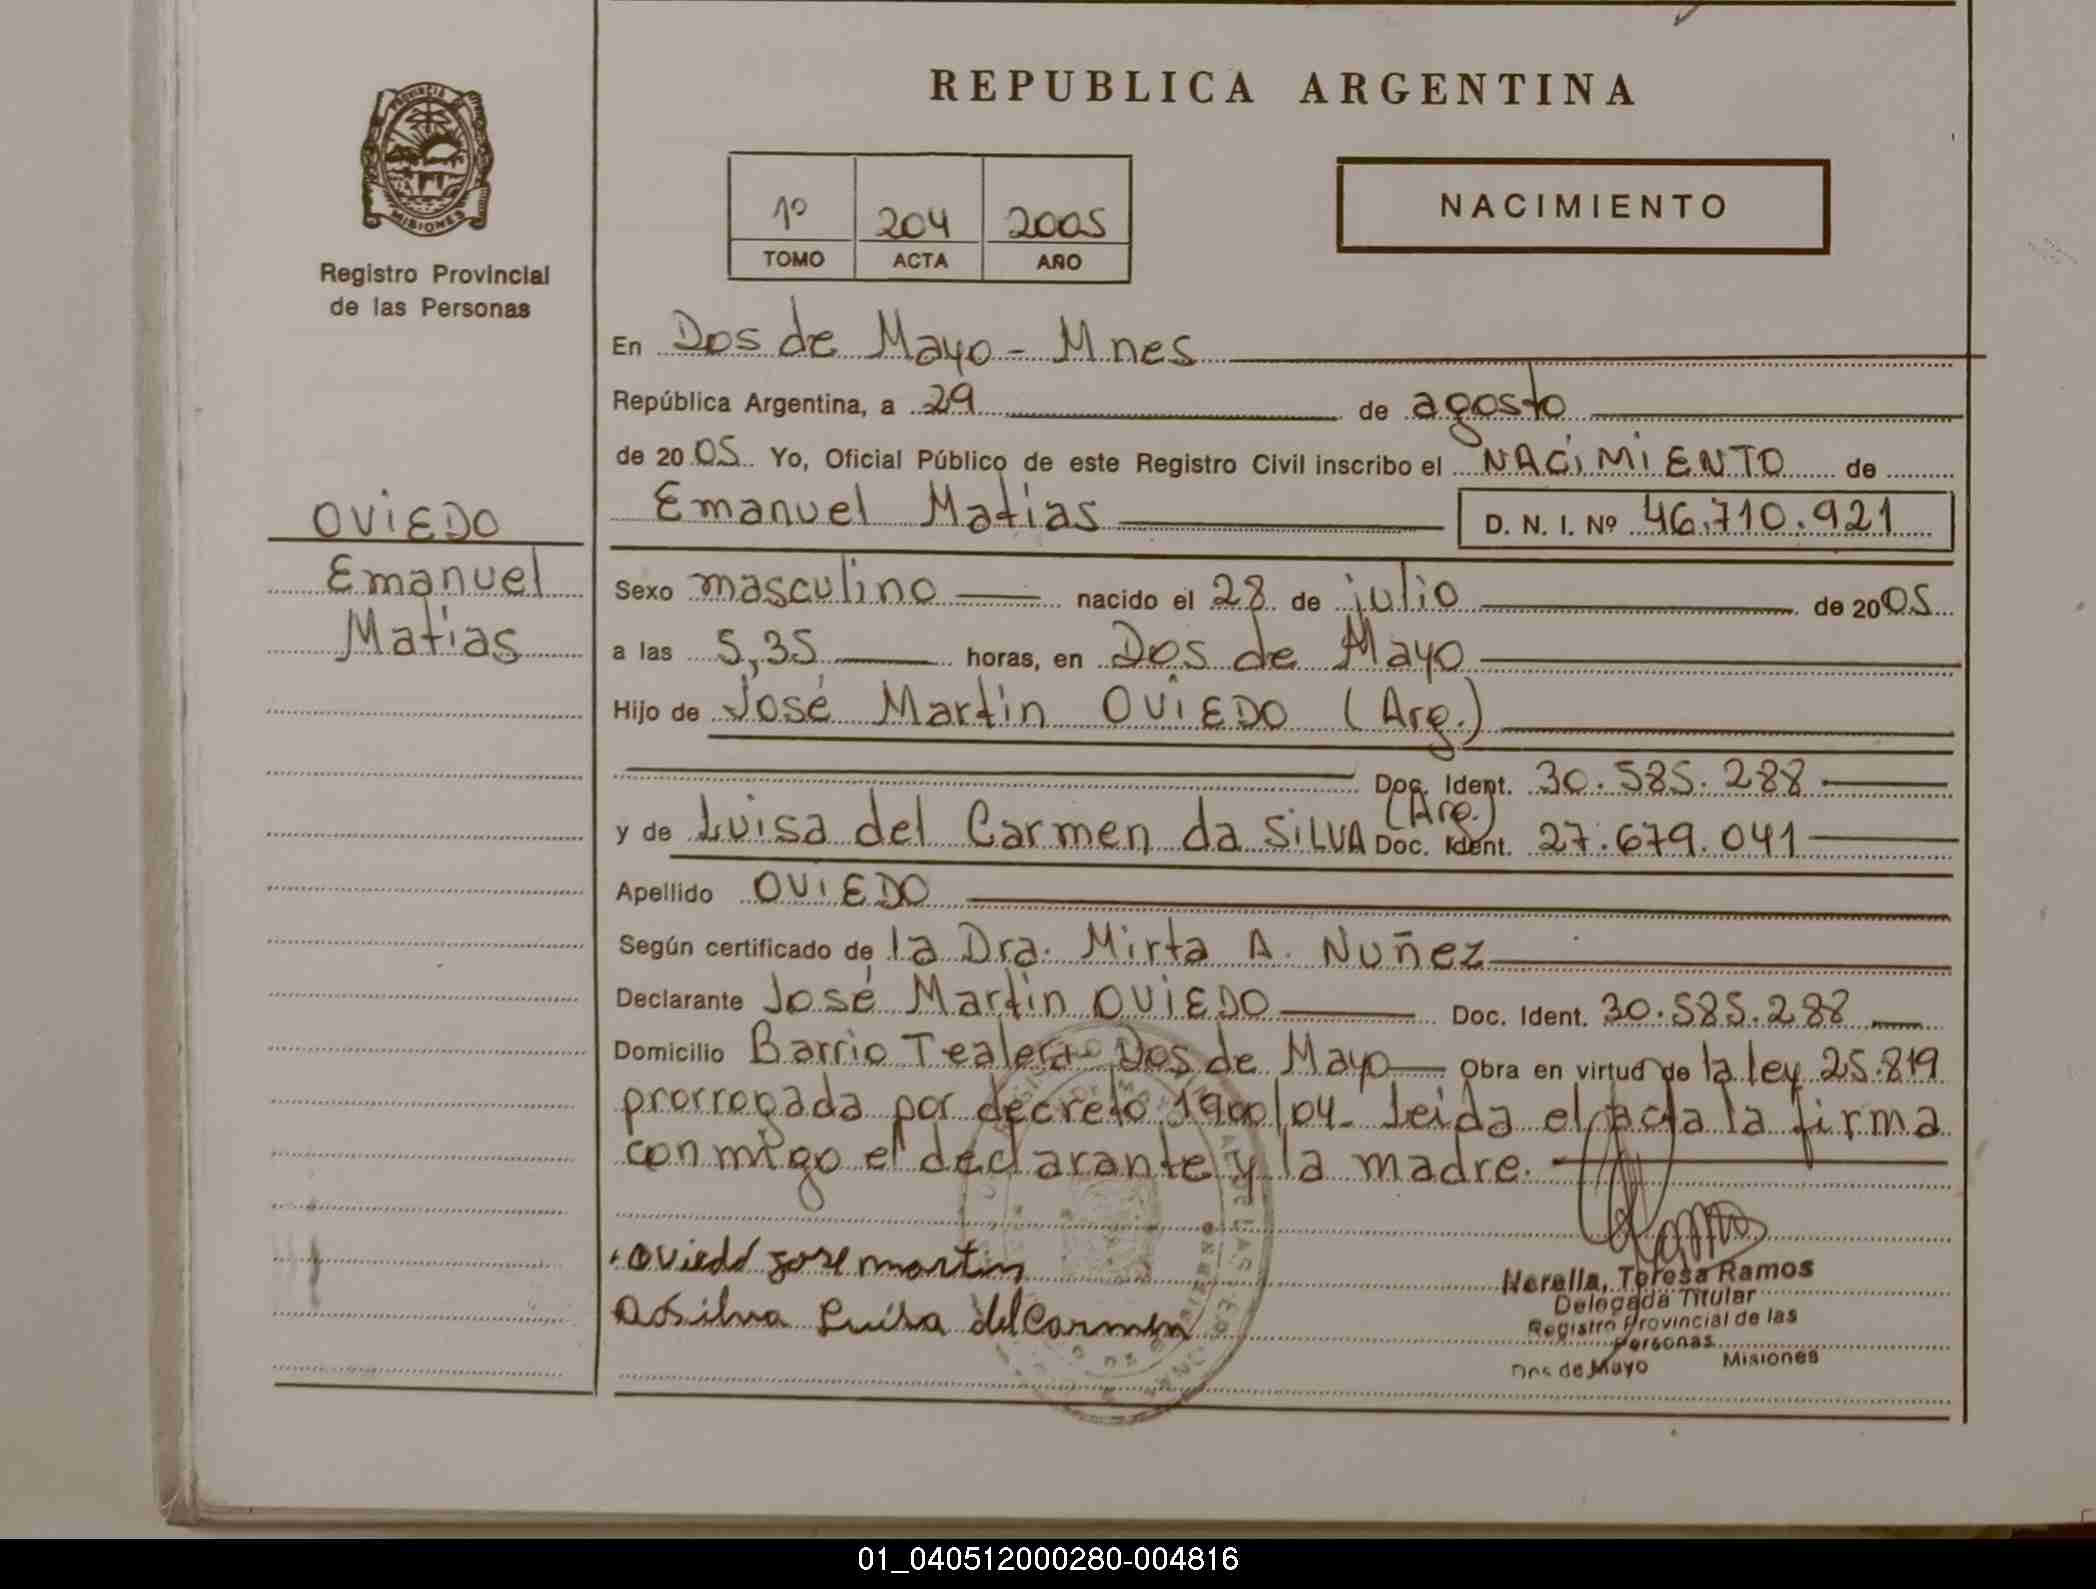 REPUBLICA ARGENTINA
PROVINCIA DE
MISIONES
Registro Provincial
de las Personas
1º 204 2005
TOMO ACTA AÑO
NACIMIENTO
En Dos de Mayo - Mnes
República Argentina, a 29 de agosto
de 2005 Yo, Oficial Público de este Registro Civil inscribo el NACIMIENTO de
Emanuel Matias D. N. I. Nº 46.710.921
OVIEDO
Emanuel
Matias
Sexo masculino nacido el 28 de julio de 2005
a las 5,35 horas, en Dos de Mayo
Hijo de José Martin OVIEDO (Arg.)
Doc. Ident. 30.585.288
(Arg.)
y de Luisa del Carmen da SILVA Doc. Ident. 27.679.041
Apellido OVIEDO
Según certificado de la Dra. Mirta A. Nuñez
Declarante José Martin OVIEDO Doc. Ident. 30.585.288
Domicilio Barrio Tealera Dos de Mayo Obra en virtud de la ley 25.819
prorrogada por decreto 1900/04. Leida el acta la firma
conmigo el declarante y la madre.
oviedo jose martin
dasilva Luisa del Carmen
Norella, Teresa Ramos
Delegada Titular
Registro Provincial de las
Personas
Dos de Mayo Misiones
01_040512000280-004816